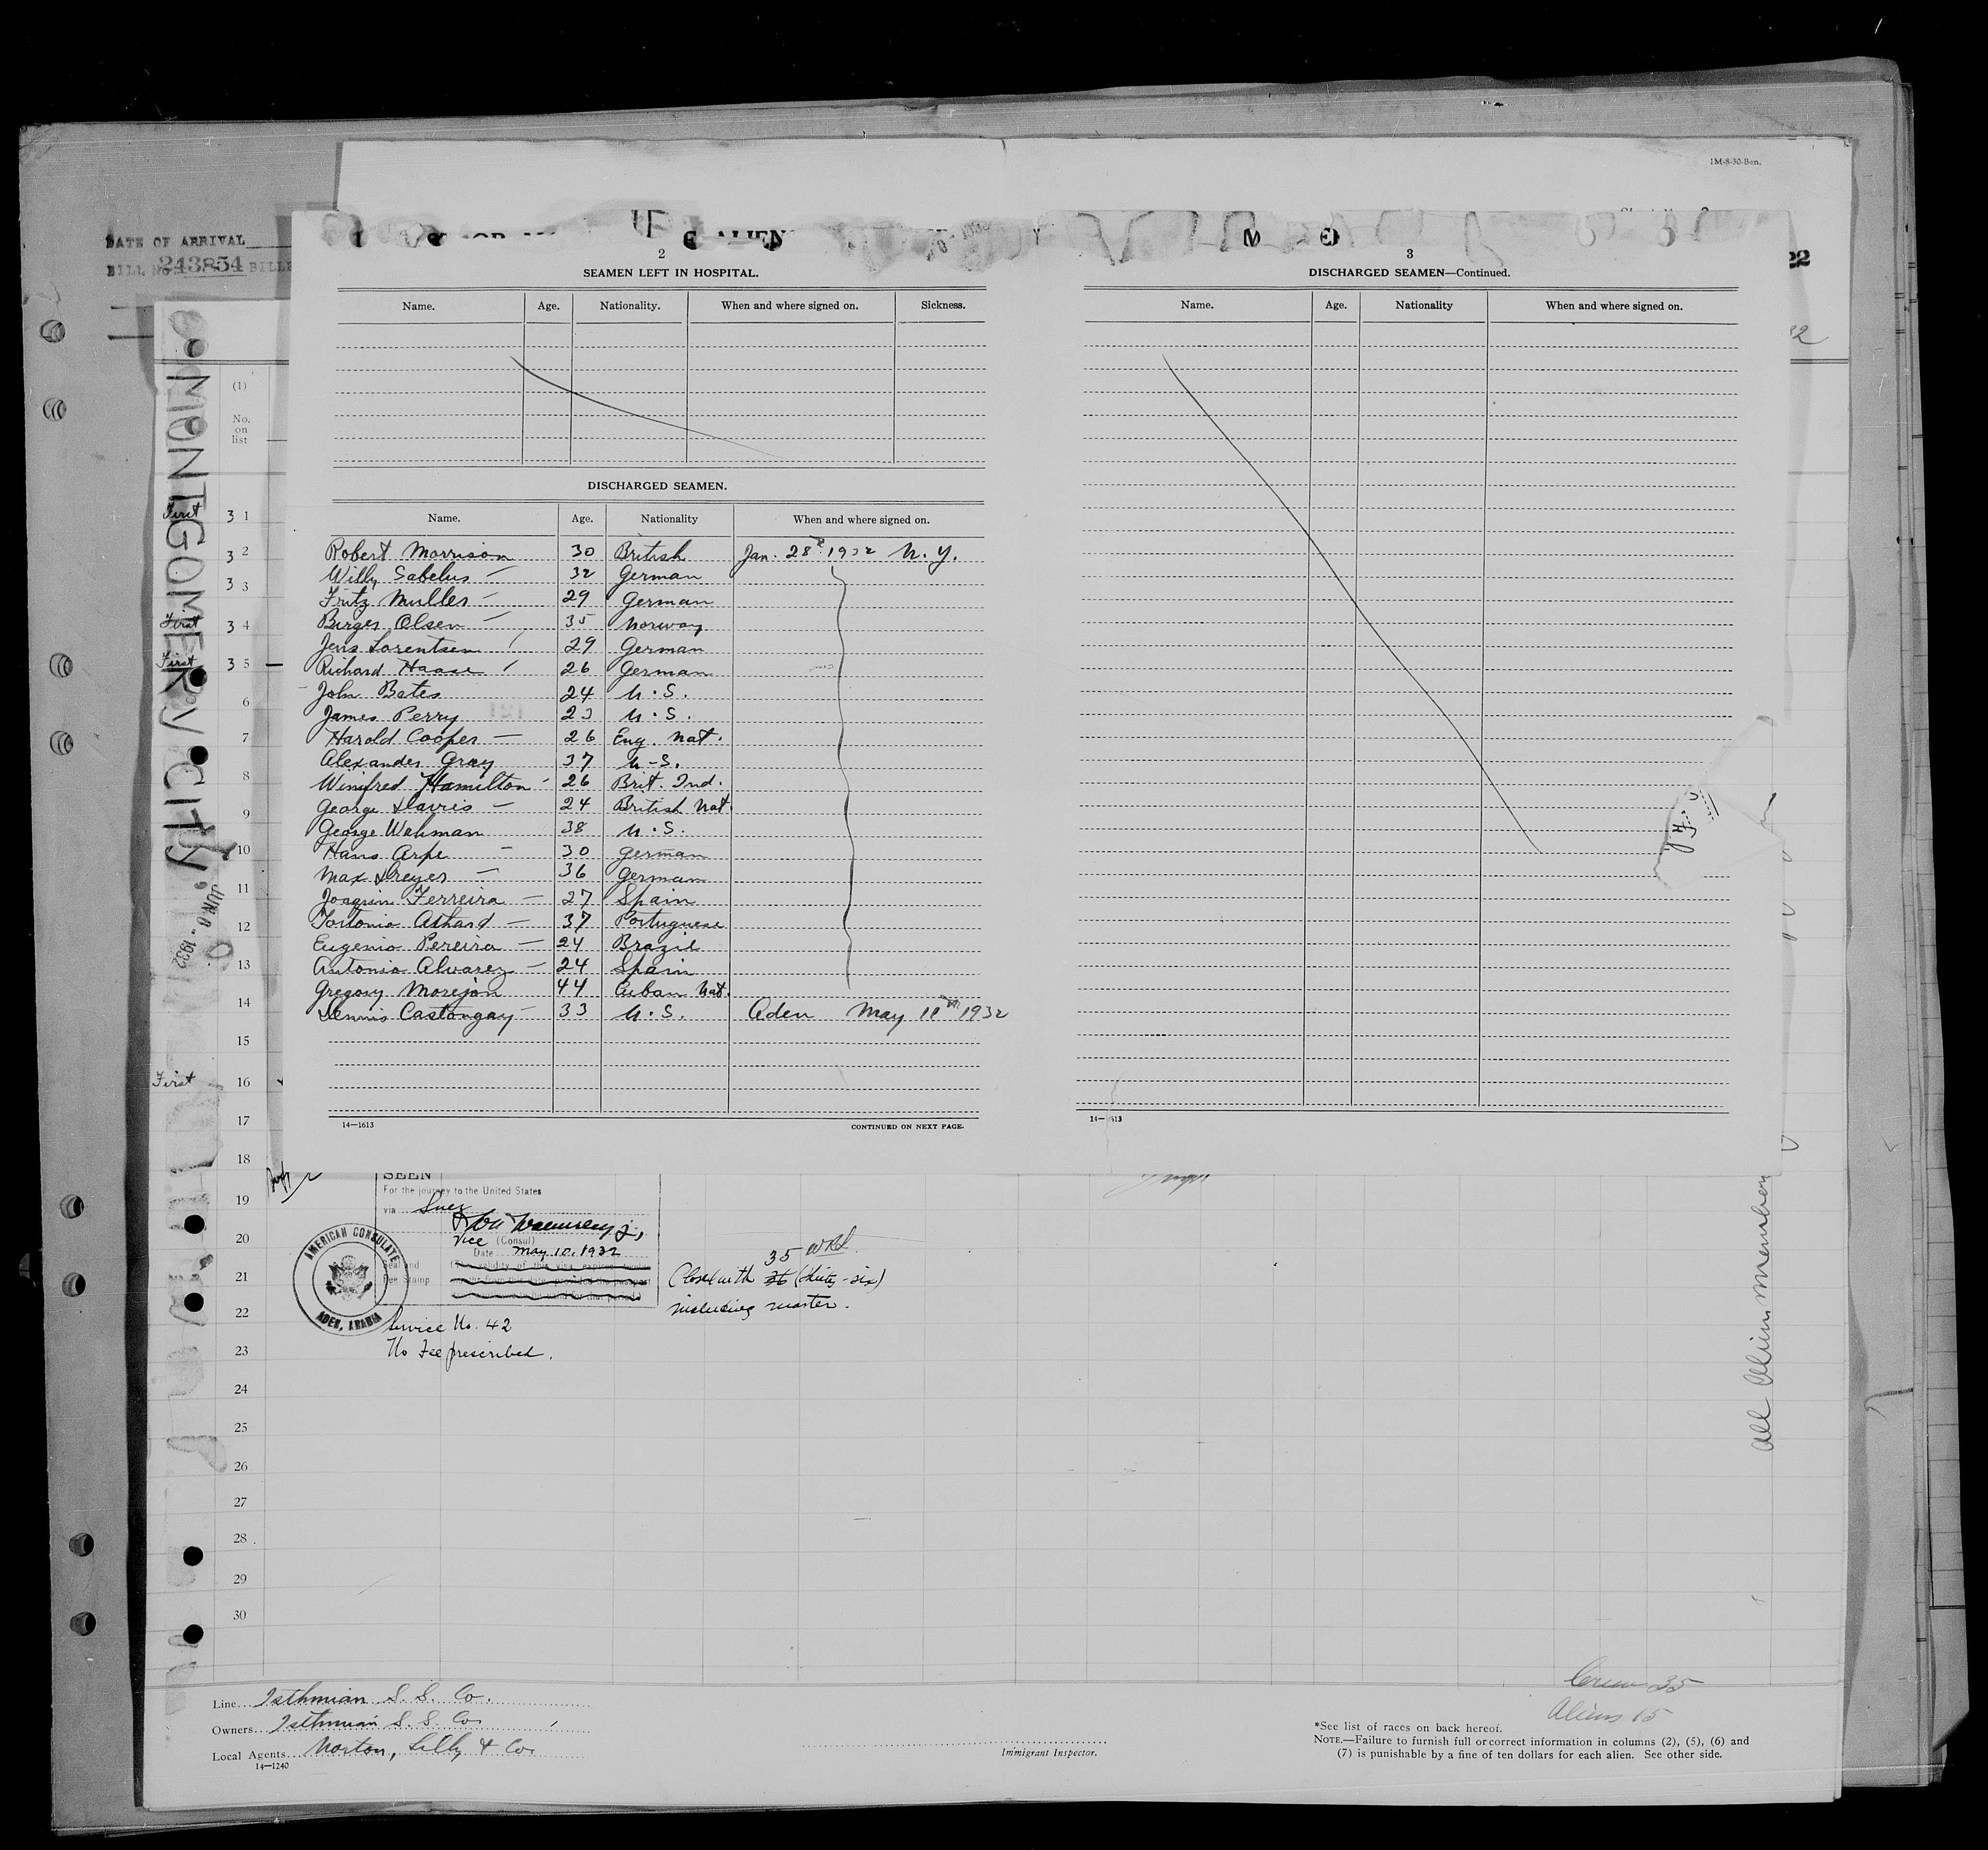 1M-8-30-Ben.
DATE OF ARRIVAL
BILL No. 243854
22
2
SEAMEN LEFT IN HOSPITAL.
Name. Age. Nationality. When and where signed on. Sickness.
DISCHARGED SEAMEN.
Name. Age. Nationality When and where signed on.
Robert Morrison 30 British Jan. 28 1932 N.Y.
Willy Sabelus — 32 German
Fritz Muller — 29 German
Birger Olsen — 35 Norway
Jens Lorentsen 29 German
Richard Haase 26 German
John Bates 24 U.S.
James Perry 23 U.S.
Harold Cooper — 26 Eng. Nat.
Alexander Gray 37 U-S.
Winifred Hamilton 26 Brit. Ind.
George Davis — 24 British Nat.
George Wehman 38 U.S.
Hans Arpe — 30 German
Max Dreyer — 36 German
Joaquin Ferreira — 27 Spain
37 Portuguese
Eugenio Pereira — 24 Brazil
Antonio Alvarez — 24 Spain
Gregory Morejon 44 Cuban Nat.
Dennis Castongay 33 U.S. Aden May 11th 1932
14—1613 CONTINUED ON NEXT PAGE.
3
DISCHARGED SEAMEN—Continued.
Name. Age. Nationality When and where signed on.
14—1613
MONTGOMERY CITY
1932
(1)
No.
on
list
First 3 1
3 2
3 3
First 3 4
First 3 5
6
7
8
9
10
11
12
13
14
15
First 16
17
18
19
20
21
22
23
24
25
26
27
28
29
30
SEEN
For the journey to the United States
via Suez
Vice (Consul)
Date May 10, 1932
Seal and
Fee Stamp
AMERICAN CONSULATE
ADEN, ARABIA
Service No. 42
No Fee prescribed.
35
Closed with 36 (thirty-six)
including master.
All Alien members
Line Isthmian S. S. Co.
Owners Isthmian S. S. Co.
Local Agents Norton, Lilly & Co.
14—1240
Immigrant Inspector.
Crew 35
Aliens 15
*See list of races on back hereof.
NOTE.—Failure to furnish full or correct information in columns (2), (5), (6) and
(7) is punishable by a fine of ten dollars for each alien. See other side.